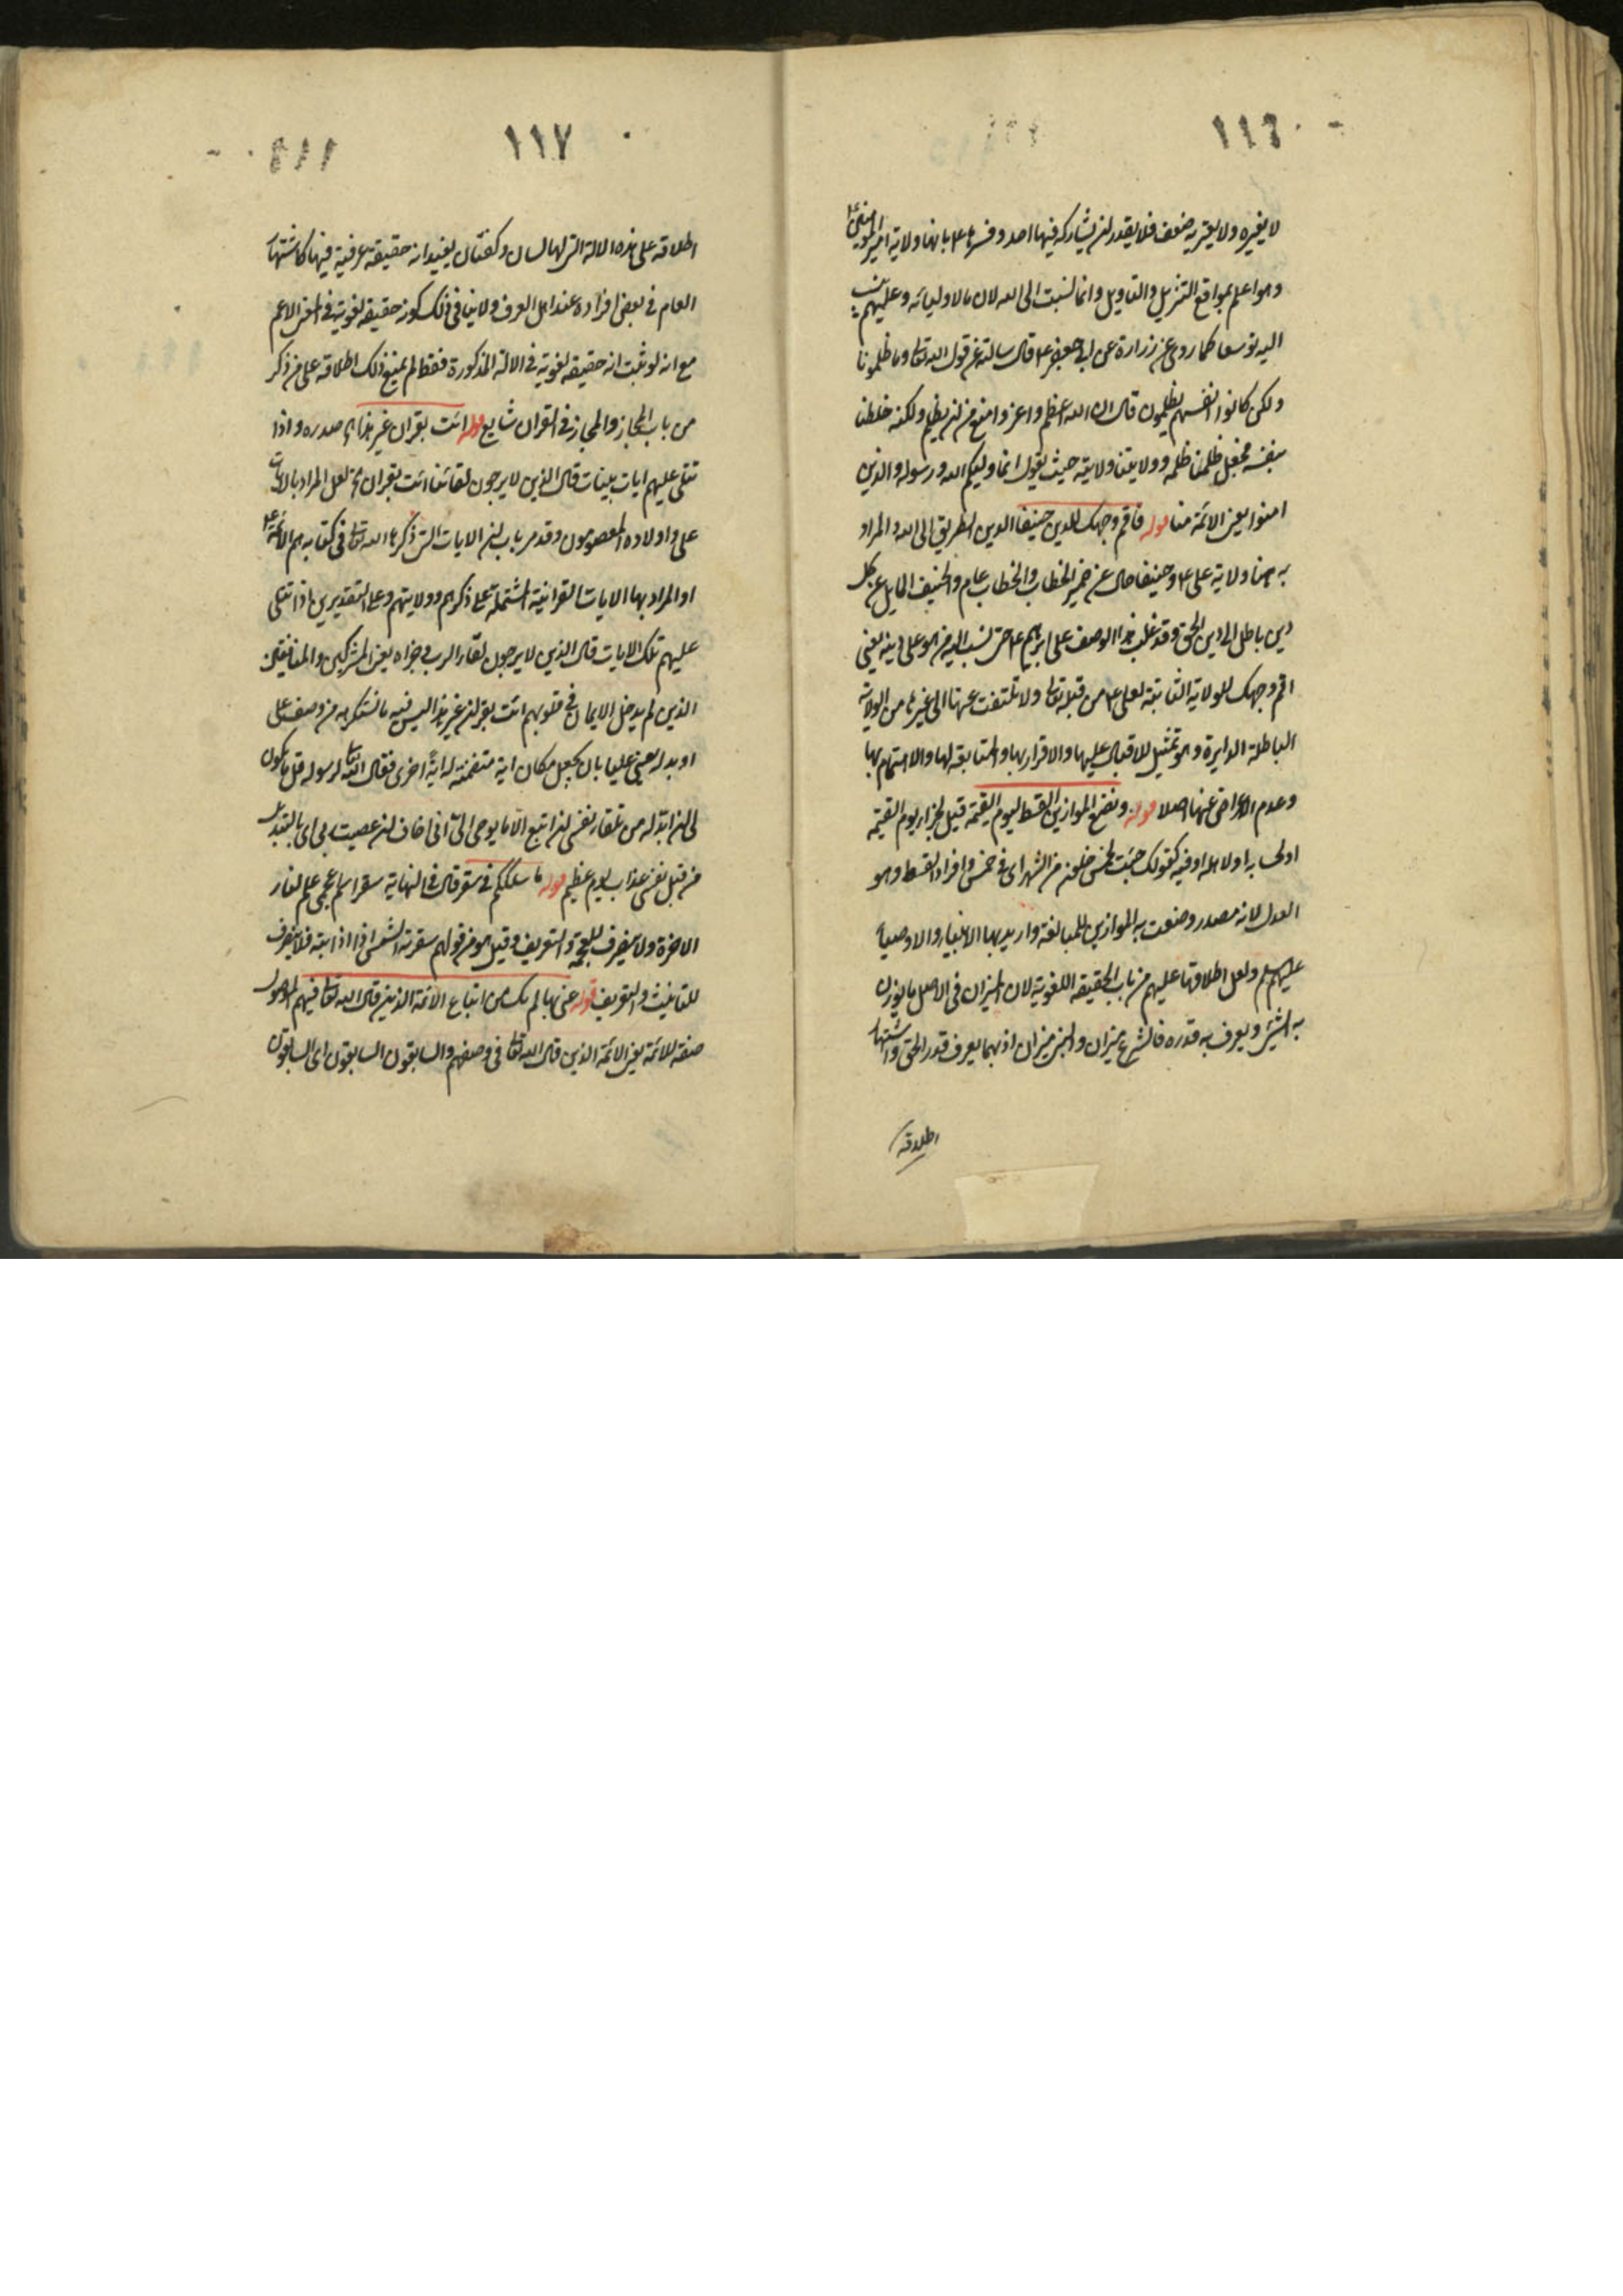 ١١٦
لا يغيره ولا يعتريه ضعف فلا يقدر لن يشاركه فيها احد وفسرها ع بانها ولاية امير المؤمنين ع
وهو اعلم بمواقع التنزيل والتاويل وانما نسبت الى الله لان ما لاوليائه وعليهم ينسب
اليه توسعا كما روى عن زرارة عن ابى جعفر ع قال سالته عن قول الله تعالى وما ظلمونا
ولكن كانوا انفسهم يظلمون قال ان الله اعظم واعز وامنع من لن يظلم ولكنه خلطنا
بنفسه فجعل ظلمنا ظلمه وولايتنا ولايته حيث يقول انما وليكم الله ورسوله والذين
امنوا يعنى الائمة منا قوله فاقم وجهك للدين حنيفا الدين الطريق الى الله والمراد
به هنا ولاية على ع وحنيفا حال عن ضمير الخطاب والخطاب عام والحنيف المايل عن كل
دين باطل الى دين الحق وقد غلب هذا الوصف على ابرهيم ع حتى نسب اليه من هو على دينه يعنى
اقم وجهك للولاية الثابتة لعلى ع من قبله تعالى ولا تلتفت عنها الى غيرها من الولاية
الباطلة الدايرة وهو تمثيل للاقبال عليها والاقرار بها والمتابعة لها والاهتمام بها
وعدم الاعراض عنها اصلا قوله ونضع الموازين القسط ليوم القيمة قيل لجزاء يوم القيمة
اولى به او لاهله او فيه كقولك جئت لخمس خلون من الشهر اى فى خمس وافراد القسط وهو
العدل لانه مصدر وصفت به الموازين للمبالغة واريد بها الانبياء والاوصياء
عليهم السلم ولعل اطلاقها عليهم من باب الحقيقة اللغوية لان الميزان فى الاصل ما يوزن
به الشئ ويعرف به قدره فالشرع ميزان والنبى ميزان اذ بهما يعرف قدر الحق واشتهار
اطلاقه
١١٧
اطلاقه على هذه الالة التى لها لسان وكفتان يفيد انه حقيقة عرفية فيها كاشتهار
العام فى بعض افراده عند اهل العرف ولا ينافى ذلك كونه حقيقة لغوية فى المعنى الاعم
مع انه لو ثبت انه حقيقة لغوية فى الالة المذكورة فقط لم يمنع ذلك اطلاقه على من ذكر
من باب المجاز والمجاز فى القران شايع قوله ائت بقران غير هذا صدره واذا
تتلى عليهم ايات بينات قال الذين لا يرجون لقائنا ائت بقران لعل المراد بالايات
على واولاده المعصومون وقد مر باب لن الايات التى ذكرها الله تعالى فى كتابه هم الائمة ع
او المراد بها الايات القرانية المشتملة على ذكرهم وولايتهم وعلى التقديرين اذا تتلى
عليهم تلك الايات قال الذين لا يرجون لقاء الرب وجزاه يعنى المشركين والمنافقين
الذين لم يدخل الايمان فى قلوبهم ائت بقران غير هذا ليس فيه ما نستكرهه من وصف على
او بدله يعنى عليا بان يجعل مكان اية متضمنة له اية اخرى فقال الله تعالى لرسوله قل ما يكون
لى لن ابدله من تلقاء نفسى لن اتبع الا ما يوحى الى انى اخاف لن عصيت ربى اى بالتبديل
من قبل نفسى عذاب يوم عظيم قوله ما سلككم فى سقر قال فى النهاية سقر اسم عجمى علم لنار
الاخرة ولا ينصرف للعجمة والتعريف وقيل هو من قولهم سقرته الشمس اذا اذابته فلا ينصرف
للتانيث والتعريف قوله عنى بها لم نك من اتباع الائمة الذين قال الله تعالى فيهم الموصول
صفة للائمة يعنى الائمة الذين قال الله تعالى فى وصفهم والسابقون السابقون اى السابقون